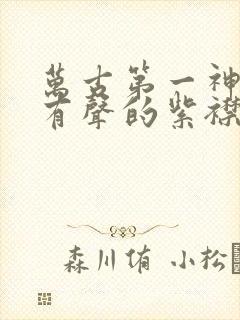 萬古第一神
有聲的紫襟
森川侑 小松